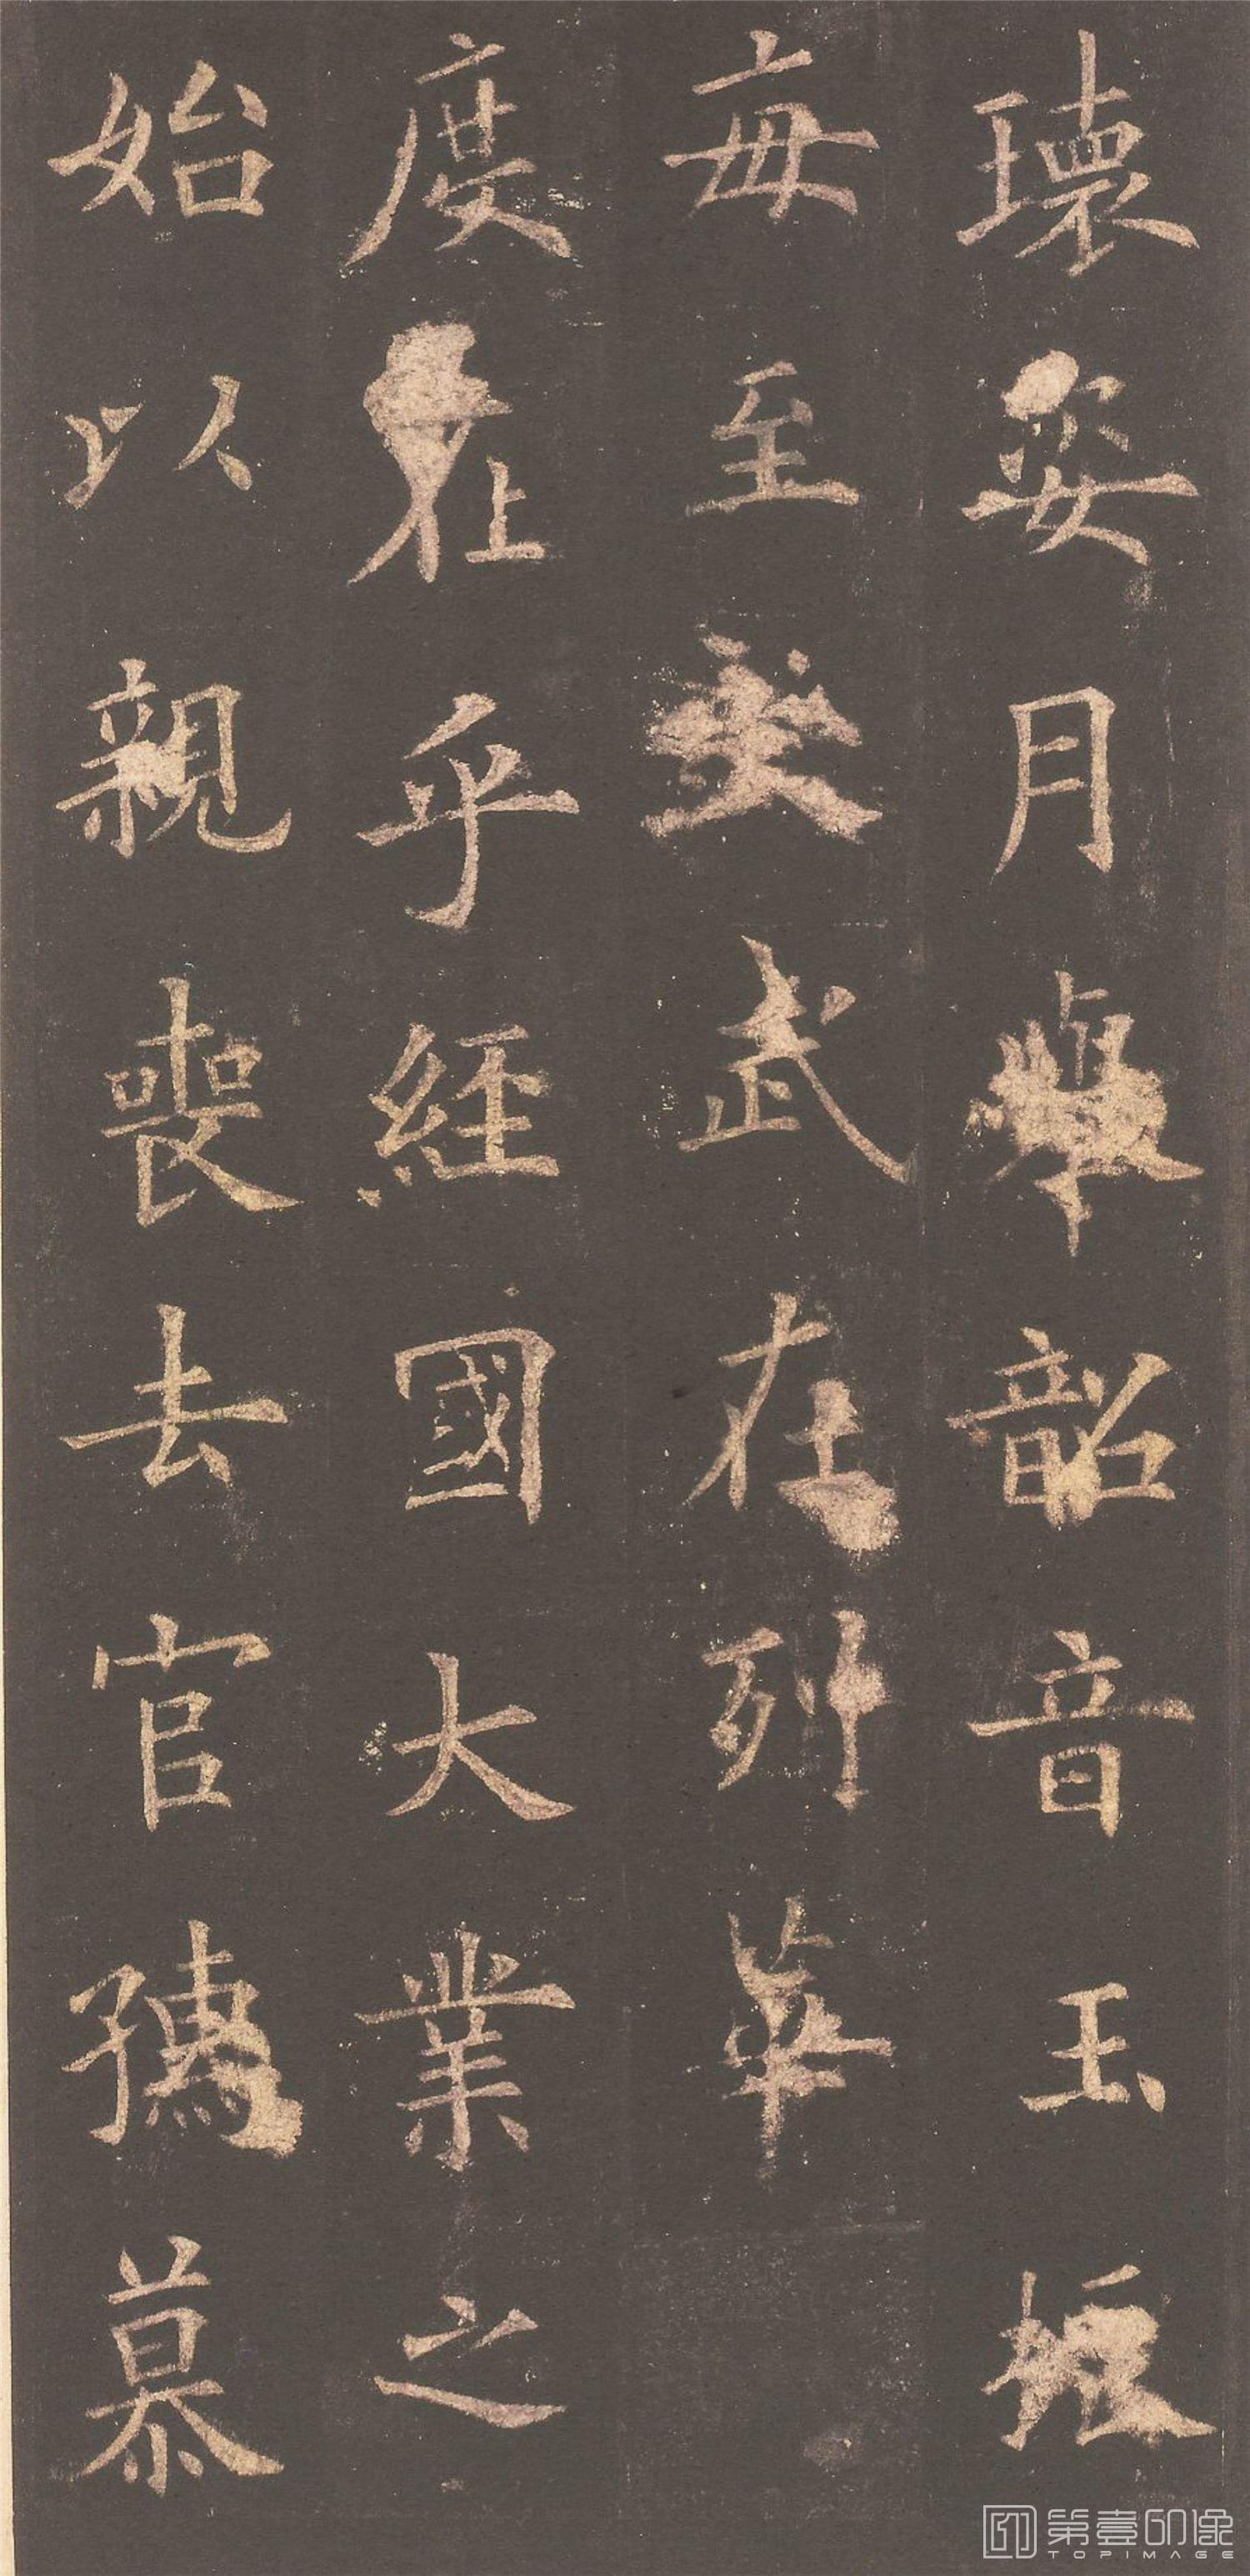 瓌姿月舉韶音玉振
每至武在列華
度在乎經國大業之
始以親喪去官孺慕
第壹印像
TOPIMAGE